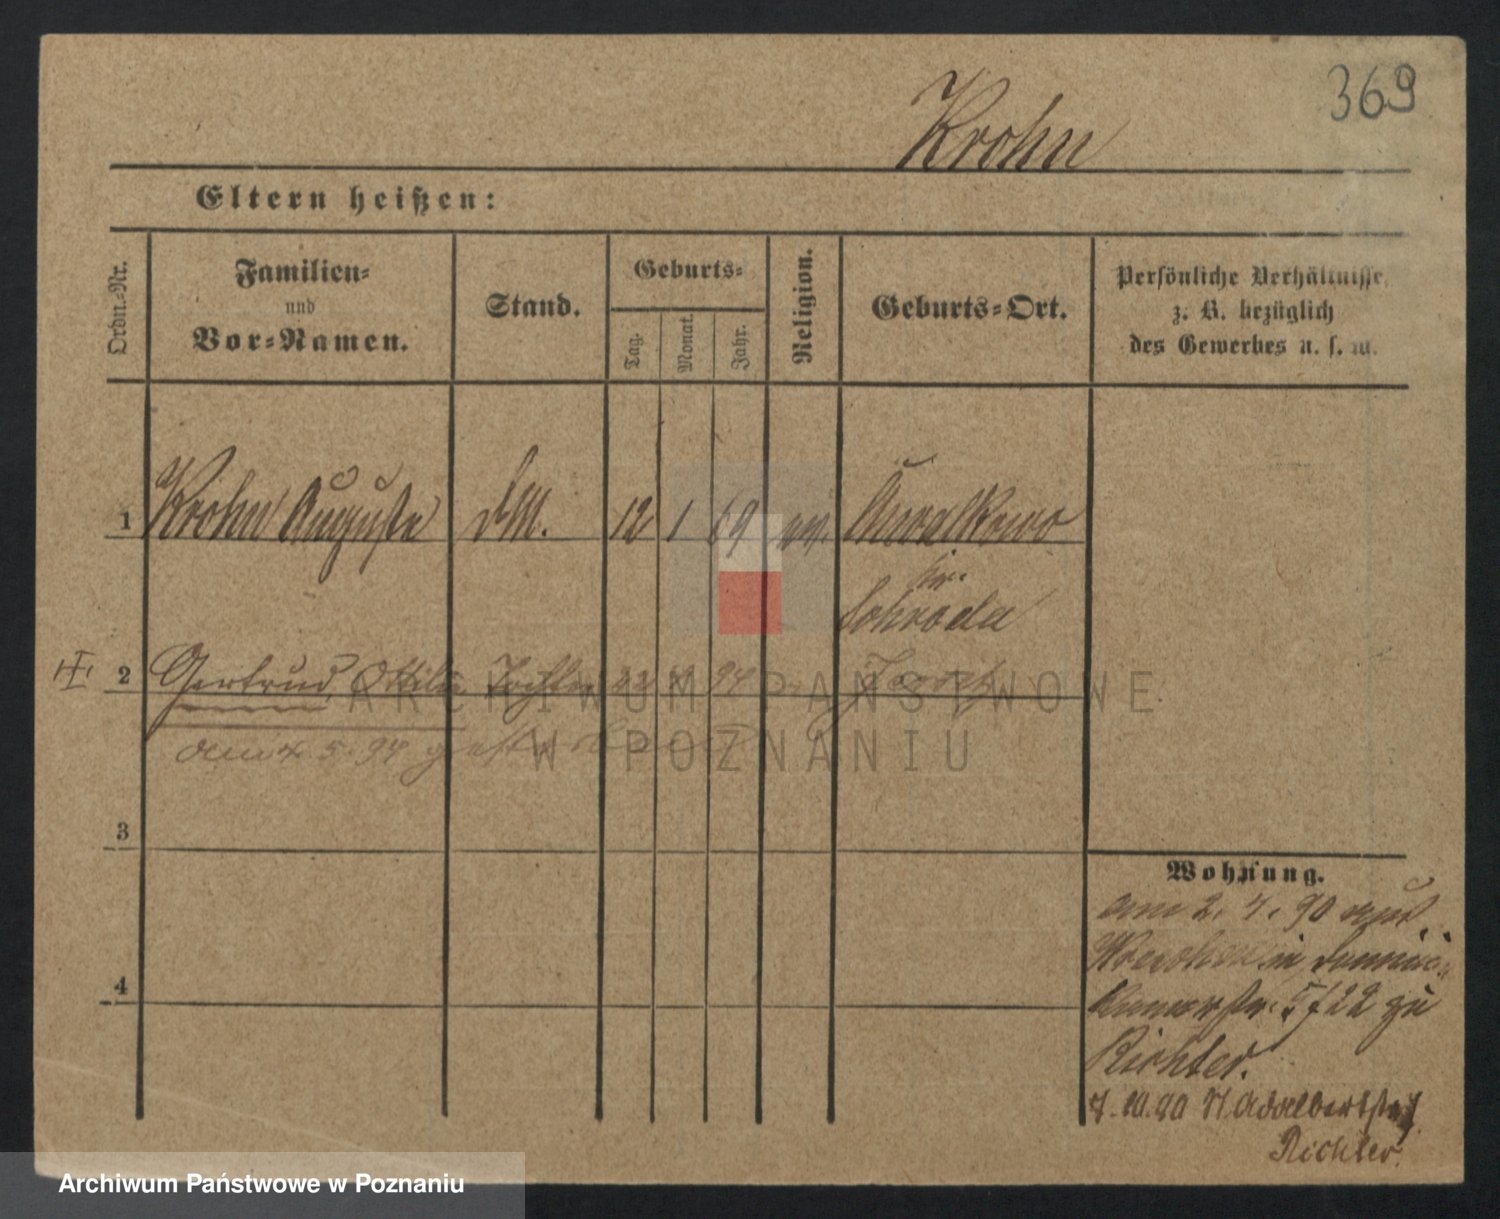 369
Krohn
Eltern heißen:
Ordn.-Nr.
Familien-
und
Vor-Namen.
Stand.
Geburts-
Tag.
Monat.
Jahr.
Religion.
Geburts-Ort.
Persönliche Verhältnisse,
z. B. bezüglich
des Gewerbes u. s. w.
1 Krohn Auguste dM. 12 1 69 ev.
Kr.
Schroda
2 Gertrud Ottilie Tochter 22 94
am 4. 5. 94 gestorben
3
4
Wohnung.
am 2. 4. 90 aus
Wreschen in
22 zu
Richter.
4. 10. 90 Adalbertstr
Richter.
ARCHIWUM PAŃSTWOWE
W POZNANIU
Archiwum Państwowe w Poznaniu